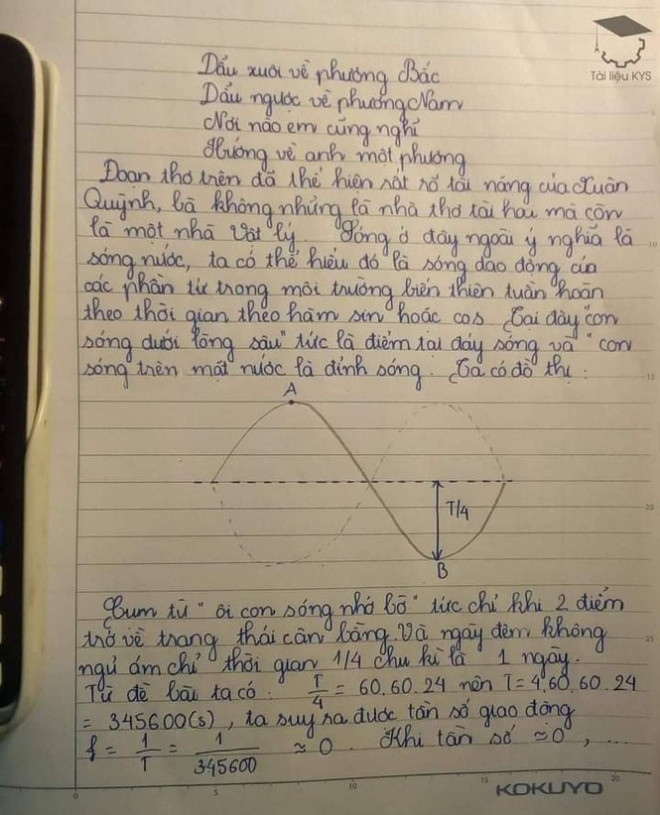 Tài liệu KYS
Dẫu xuôi về phương Bắc
Dẫu ngược về phương Nam
Nơi nào em cũng nghĩ
Hướng về anh một phương
Đoạn thơ trên đã thể hiện rất rõ tài năng của Xuân
Quỳnh, bà không những là nhà thơ tài hoa mà còn
là một nhà Vật lý. Sóng ở đây ngoài ý nghĩa là
sóng nước, ta có thể hiểu đó là sóng dao động của
các phần tử trong môi trường biến thiên tuần hoàn
theo thời gian theo hàm sin hoặc cos. Tại đây "con
sóng dưới lòng sâu" tức là điểm tại đáy sóng và "con
sóng trên mặt nước là đỉnh sóng. Ta có đồ thị:
A
T/4
B
Cụm từ "ôi con sóng nhớ bờ" tức chỉ khi 2 điểm
trở về trạng thái cân bằng. Và ngày đêm không
ngủ ám chỉ thời gian 1/4 chu kì là 1 ngày.
Từ đề bài ta có: T/4 = 60.60.24 nên T = 4.60.60.24
= 345600(s), ta suy ra được tần số giao động
f = 1/T = 1/345600 ≈ 0. Khi tần số ≈ 0, ...
0 5 10 15 20
KOKUYO